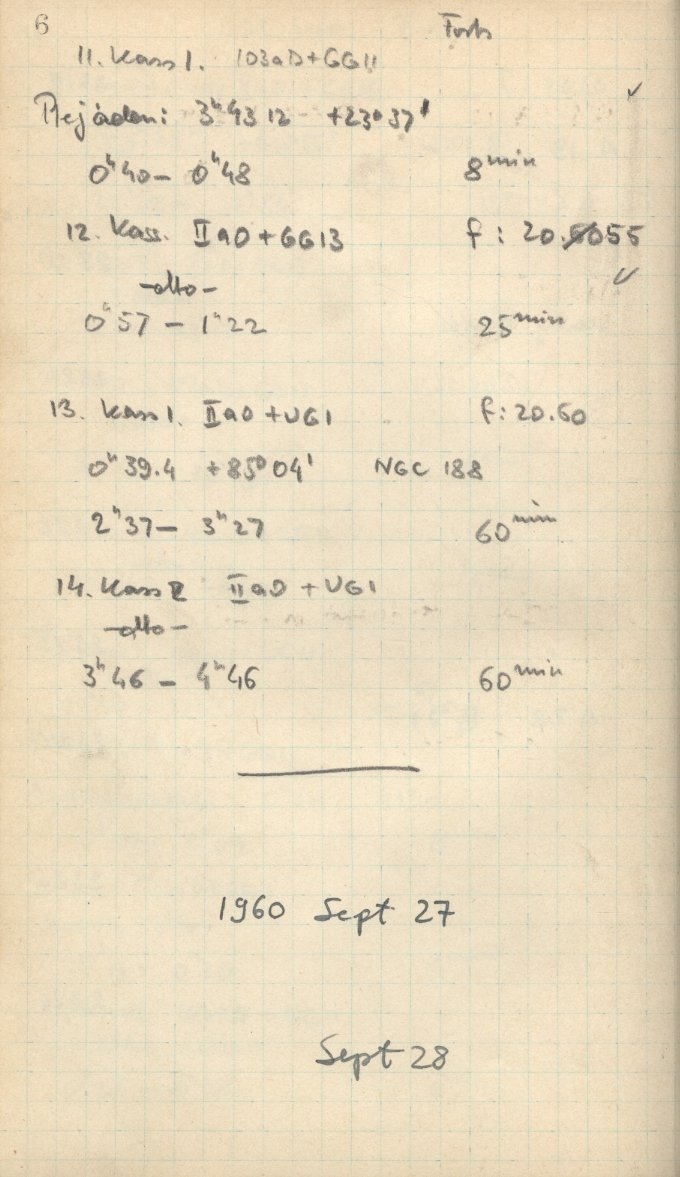 6 Forts
11. Kass 1. 103aD+GG11
✓
Plejaden: 3ʰ43 12 +23°37'
0ʰ40 – 0ʰ48 8ᵐⁱⁿ
12. Kass. IIaD+GG13 f: 20.6055
✓
– dtto –
0ʰ57 – 1ʰ22 25ᵐⁱⁿ
13. Kass 1. IIaD+UG1 f: 20.60
0ʰ39.4 +85°04' NGC 188
2ʰ37 – 3ʰ27 60ᵐⁱⁿ
14. Kass 2 IIaD + UG1
– dtto –
3ʰ46 – 4ʰ46 60ᵐⁱⁿ
1960 Sept 27
Sept 28